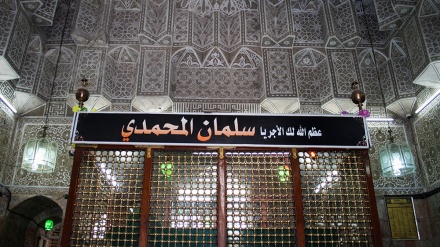 عظم الله لك الأجر يا سلمان المحمدي